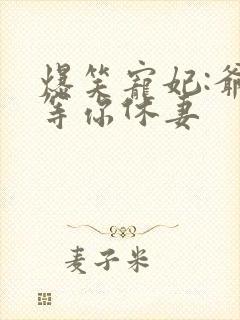 爆笑寵妃:爺
等你休妻
麦子米